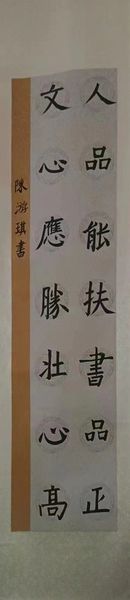 人品能扶書品正
文心應勝壯心高
陳游琪書